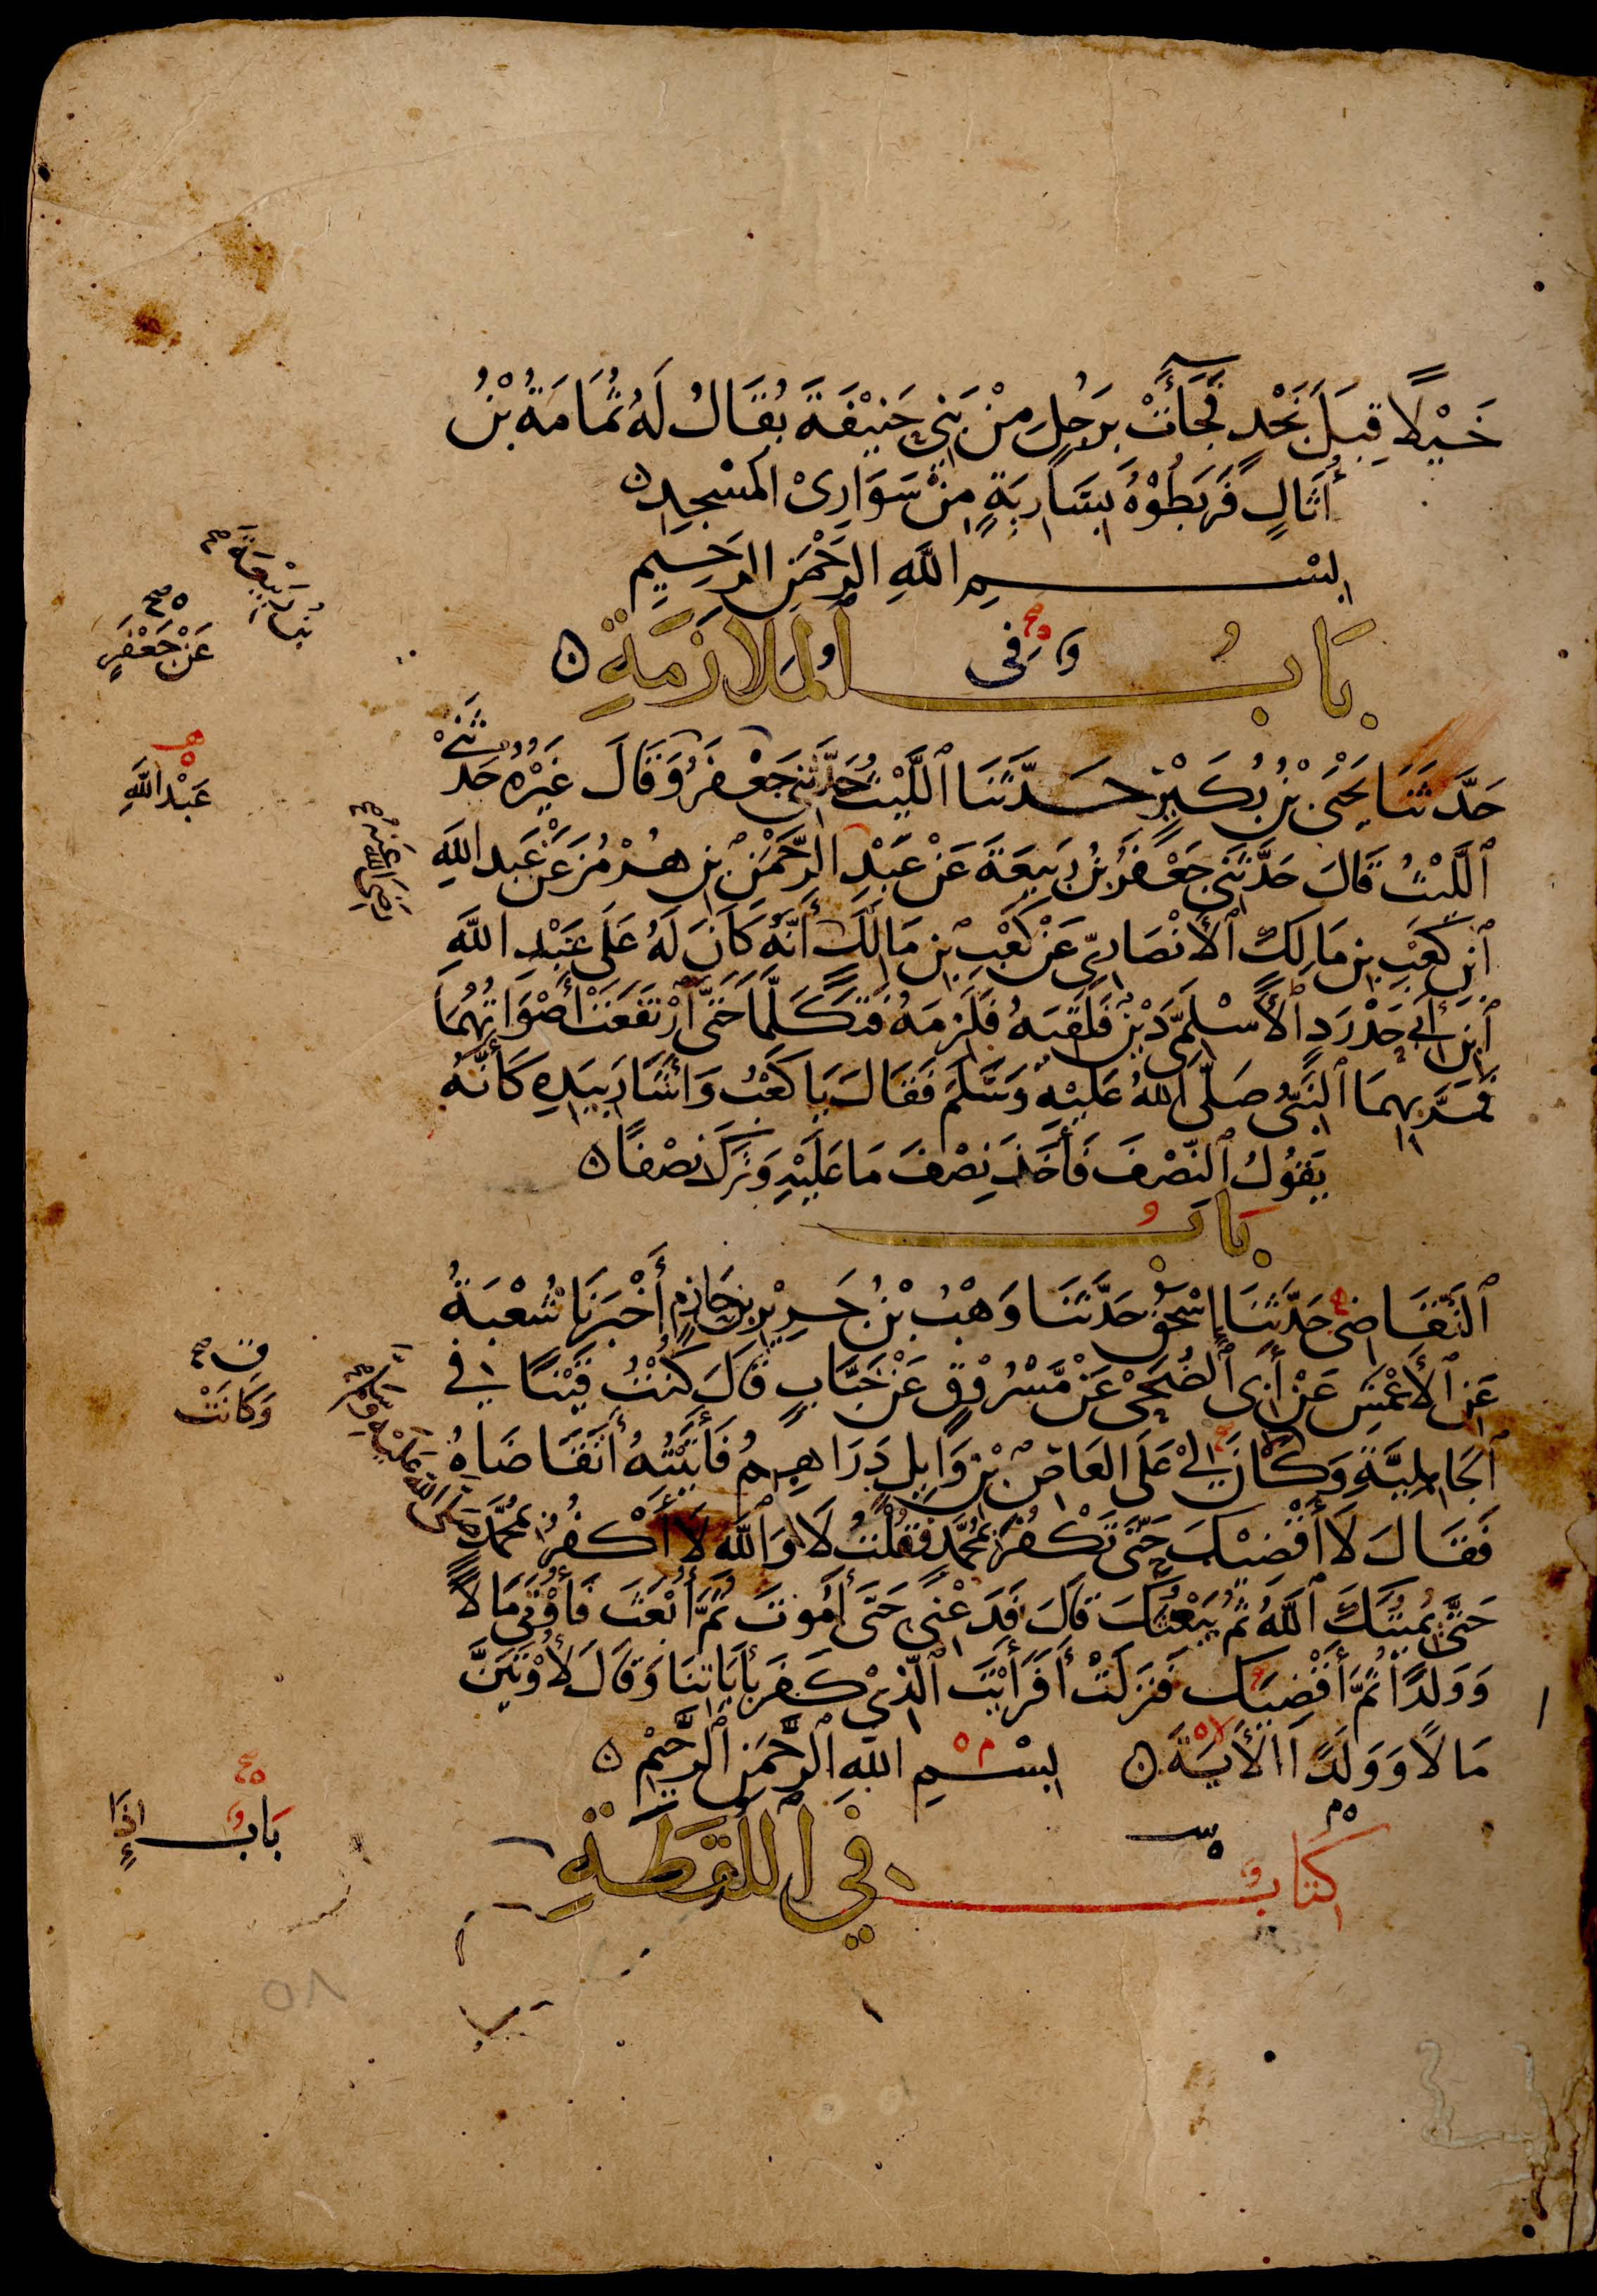 خَيْلًا قِبَلَ نَجْدٍ فَجَاءَتْ بِرَجُلٍ مِنْ بَنِي حَنِيْفَةَ يُقَالُ لَهُ ثُمَامَةُ بْنُ
أُثَالٍ فَرَبَطُوْهُ بِسَارِيَةٍ مِنْ سَوَارِى الْمَسْجِدِ
بِسْمِ اللَّهِ الرَّحْمَنِ الرَّحِيمِ
بَابُ الْمُلَازَمَةِ
فى
حَدَّثَنَا يَحْيَى بْنُ بُكَيْرٍ حَدَّثَنَا ٱللَّيْثُ حَدَّثَنِي جَعْفَرُ وَقَالَ غَيْرُهُ حَدَّثَنِي
ٱللَّيْثُ قَالَ حَدَّثَنِي جَعْفَرُ بْنُ رَبِيعَةَ عَنْ عَبْدِ الرَّحْمَنِ بْنِ هُرْمُزَ عَنْ عَبْدِ اللَّهِ
ٱبْنِ كَعْبِ بْنِ مَالِكٍ ٱلْأَنْصَارِيِّ عَنْ كَعْبِ بْنِ مَالِكٍ أَنَّهُ كَانَ لَهُ عَلَى عَبْدِ اللَّهِ
ٱبْنِ أَبِي حَدْرَدٍ ٱلْأَسْلَمِيِّ دَيْنٌ فَلَقِيَهُ فَلَزِمَهُ فَتَكَلَّمَا حَتَّى ٱرْتَفَعَتْ أَصْوَاتُهُمَا
فَمَرَّ بِهِمَا ٱلنَّبِيُّ صَلَّى اللَّهُ عَلَيْهِ وَسَلَّمَ فَقَالَ يَا كَعْبُ وَأَشَارَ بِيَدِهِ كَأَنَّهُ
يَقُوْلُ ٱلنِّصْفَ فَأَخَذَ نِصْفَ مَا عَلَيْهِ وَتَرَكَ نِصْفًا
بَابُ
ٱلتَّقَاضِى حَدَّثَنَا إِسْحَقُ حَدَّثَنَا وَهْبُ بْنُ جَرِيْرِ بْنِ حَازِمٍ أَخْبَرَنَا شُعْبَةُ
عَنِ ٱلْأَعْمَشِ عَنْ أَبِى ٱلضُّحَى عَنْ مَسْرُوْقٍ عَنْ خَبَّابٍ قَالَ كُنْتُ قَيْنًا فِي
ٱلْجَاهِلِيَّةِ وَكَانَ لِيْ عَلَى الْعَاصِ بْنِ وَايِلٍ دَرَاهِمُ فَأَتَيْتُهُ أَتَقَاضَاهُ
فَقَالَ لَا أَقْضِيْكَ حَتَّى تَكْفُرَ بِمُحَمَّدٍ فَقُلْتُ لَا وَٱللَّهِ لَا أَكْفُرُ بِمُحَمَّدٍ
حَتَّى يُمِيْتَكَ ٱللَّهُ ثُمَّ يَبْعَثَكَ قَالَ فَدَعْنِي حَتَّى أَمُوتَ ثُمَّ أُبْعَثَ فَأُوْتَى مَالًا
وَوَلَدًا ثُمَّ أَقْضِيَكَ فَنَزَلَتْ أَفَرَأَيْتَ ٱلَّذِيْ كَفَرَ بِأَيَاتِنَا وَقَالَ لَأُوْتَيَنَّ
مَالًا وَوَلَدًا ٱلْأَيَةَ بِسْمِ اللَّهِ ٱلرَّحْمَنِ ٱلرَّحِيْمِ
كِتَابُ فِي اللُّقَطَةِ
عَنْ جَعْفَرِ
بْنِ رَبِيْعَةَ
عَبْدِ اللَّهِ
رَضِيَ اللَّهُ عَنْهُ
وَكَانَتْ
صَلَّى اللَّهُ عَلَيْهِ وَسَلَّمَ
بَابُ إِذَا
٥٨